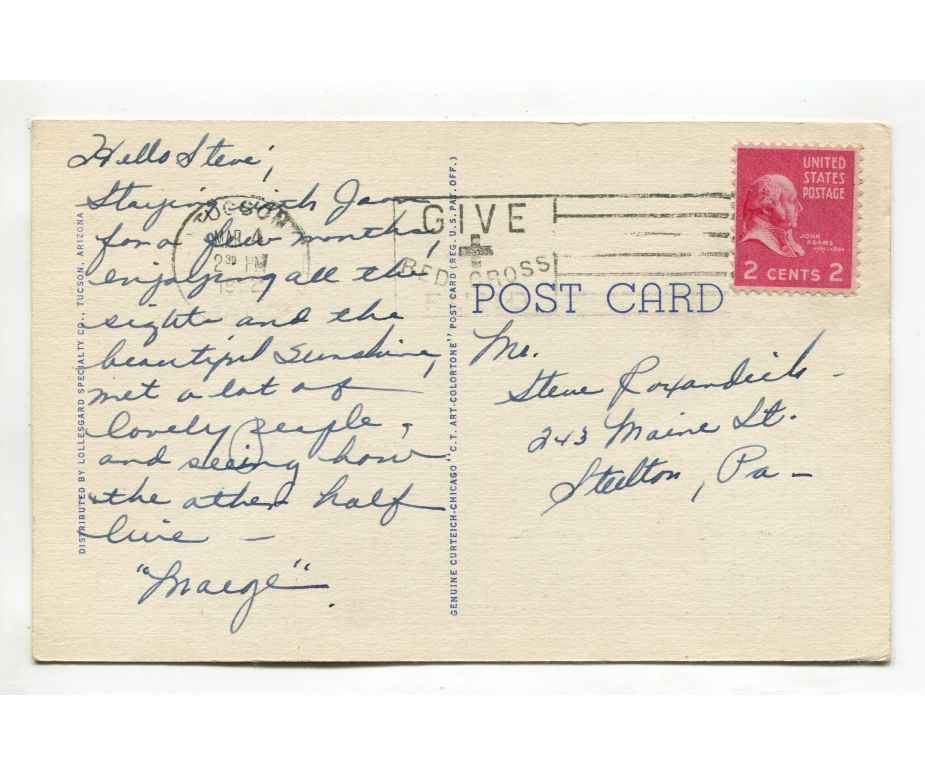 Hello Steve,
Staying with Jan
for a few months,
enjoying all the
sights and the
beautiful sunshine,
met a lot of
lovely people,
and seeing how
the other half
live —
"Marge".
DISTRIBUTED BY LOLLESGARD SPECIALTY CO., TUCSON, ARIZONA
GENUINE CURTEICH-CHICAGO "C.T. ART-COLORTONE" POST CARD (REG. U.S. PAT. OFF.)
TUCSON
MAR 4
2 30 PM
GIVE
RED CROSS
UNITED
STATES
POSTAGE
JOHN
ADAMS
2 CENTS 2
POST CARD
Mr.
Steve Roxandich -
243 Maine St.
Steelton, Pa -